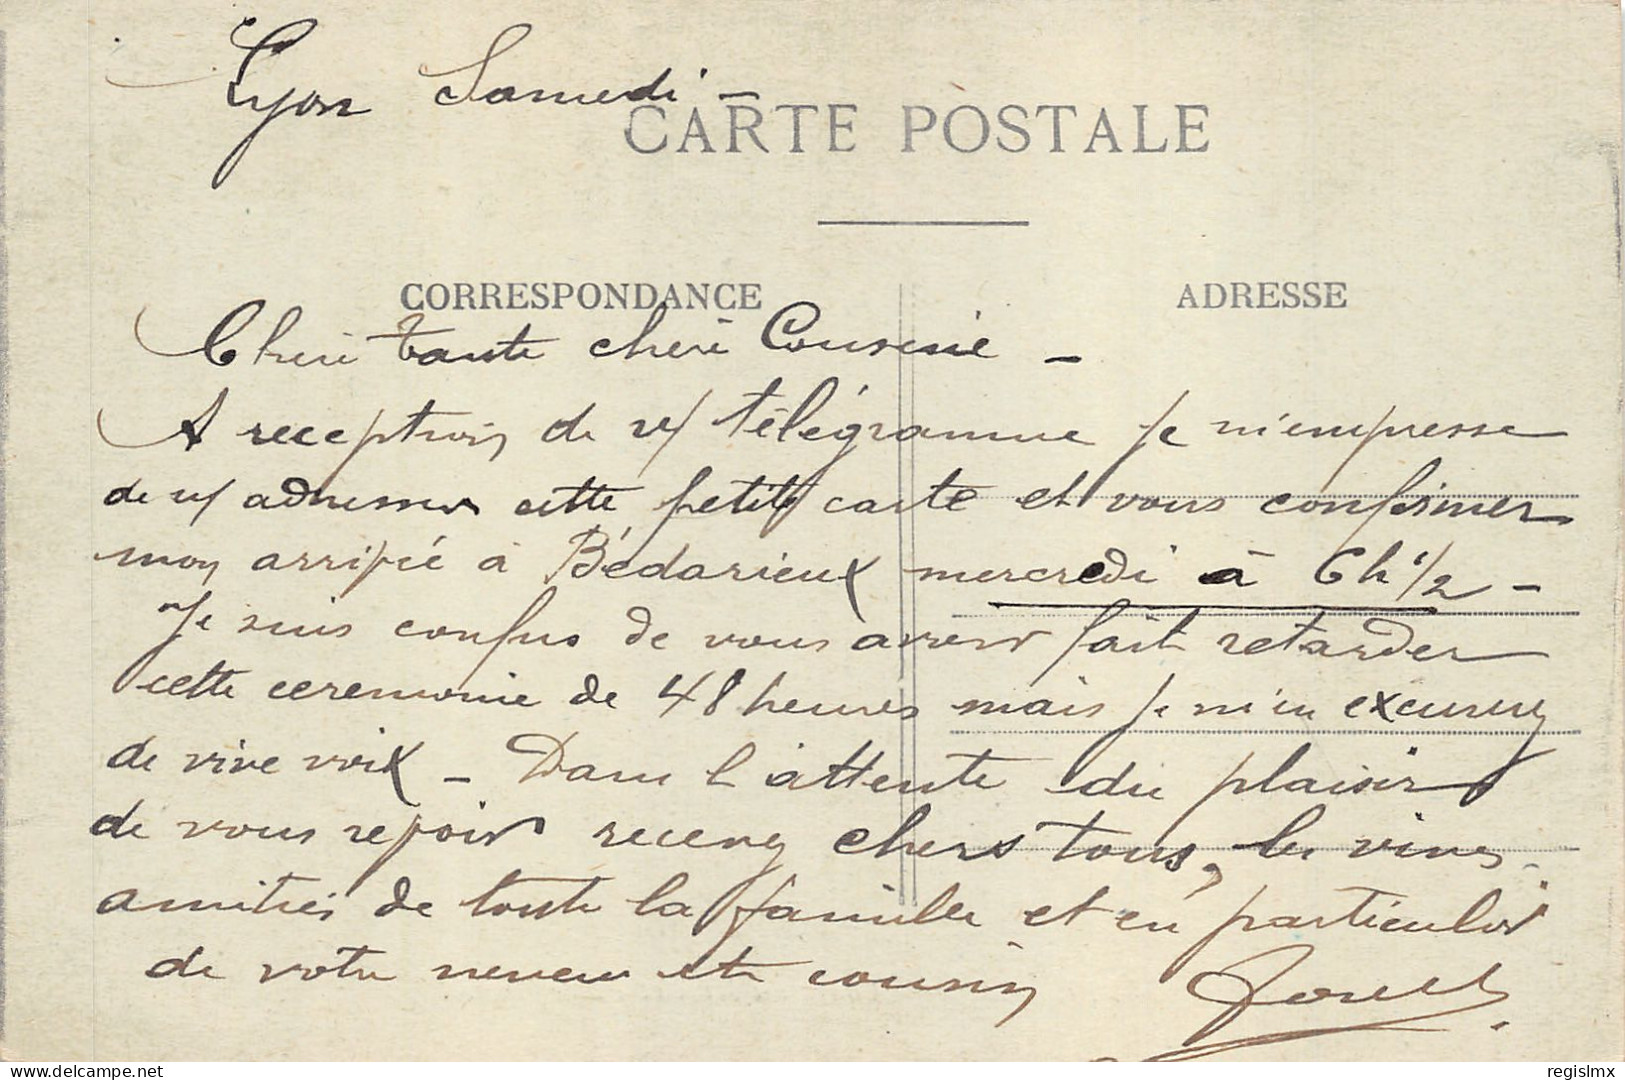 Lyon Samedi -
CARTE POSTALE
CORRESPONDANCE
ADRESSE
Chère tante chère Cousine -
A reception de v/ télégramme je m'empresse
de v/ adresser cette petite carte et vous confirmer
mon arrivée à Bédarieux mercredi à 6h 1/2 -
Je suis confus de vous avoir fait retarder
cette ceremonie de 48 heures mais je m'en excuserez
de vive voix - Dans l'attente du plaisir
de vous revoir recevez chers tous, les vives
amitiés de toute la famille et en particulier
de votre neveu et cousin
delcampe.net
regislmx